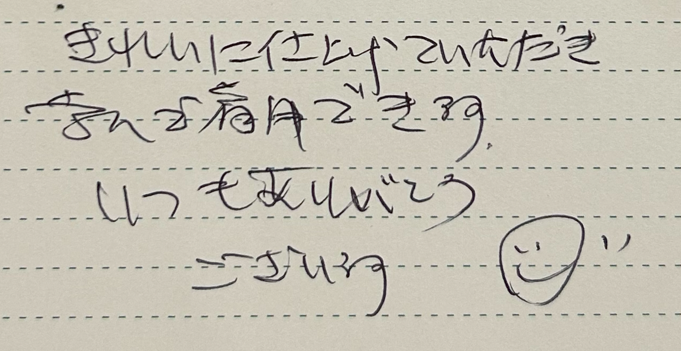 きれいに仕上げていただき
着用できます。
いつもありがとう
ございます